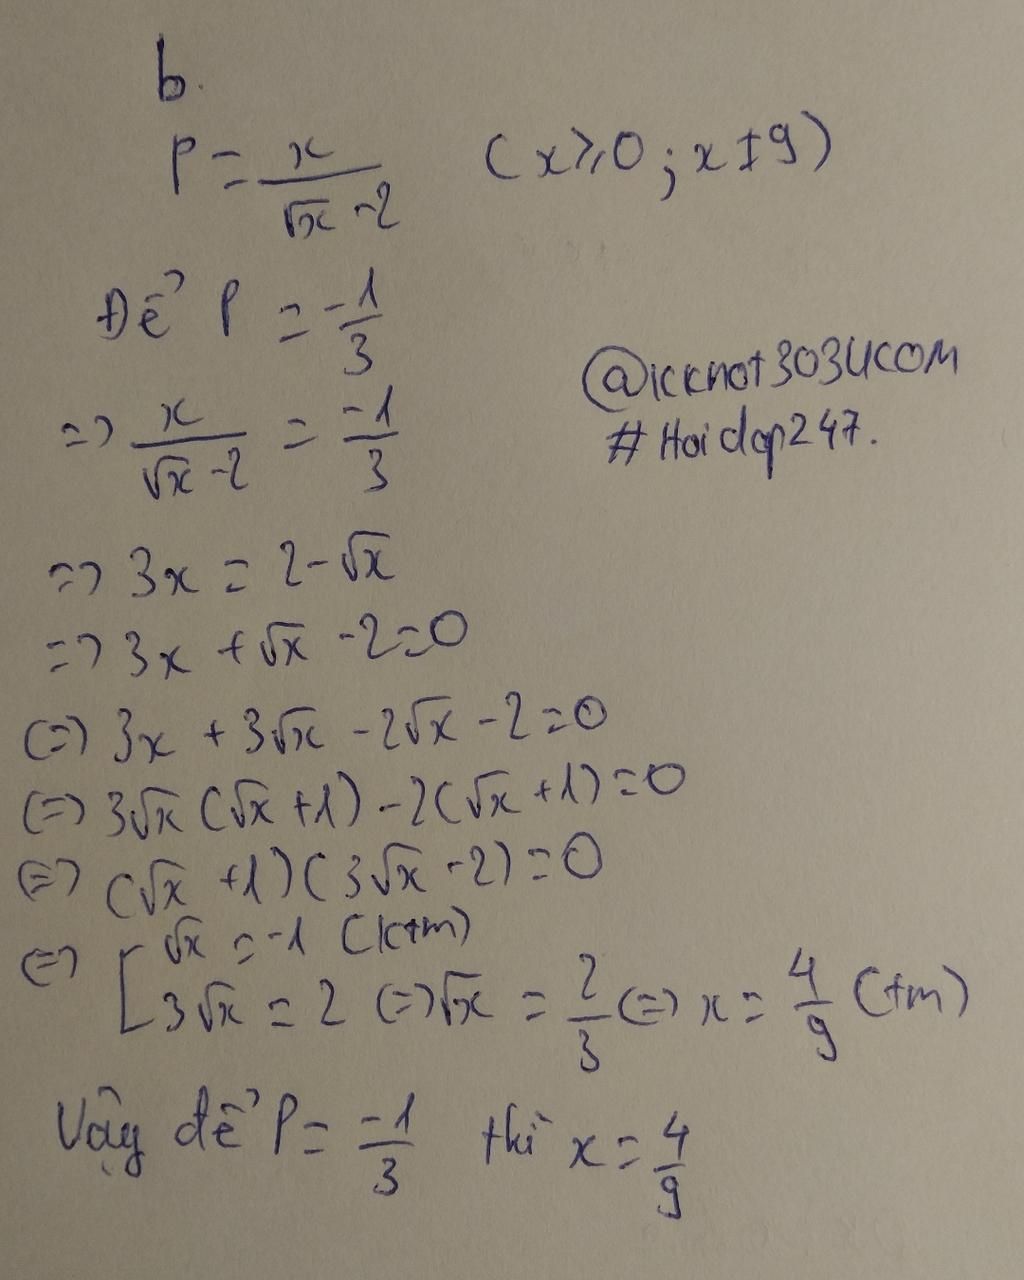 b.
P = x / (√x - 2) (x ≥ 0; x ≠ 9)
Để P = -1/3
=> x / (√x - 2) = -1/3
@kknot3034COM
#Hoidap247.
=> 3x = 2 - √x
=> 3x + √x - 2 = 0
<=> 3x + 3√x - 2√x - 2 = 0
<=> 3√x (√x + 1) - 2(√x + 1) = 0
<=> (√x + 1)(3√x - 2) = 0
<=> [ √x = -1 (ktm)
3√x = 2 <=> √x = 2/3 <=> x = 4/9 (tm)
Vậy để P = -1/3 thì x = 4/9